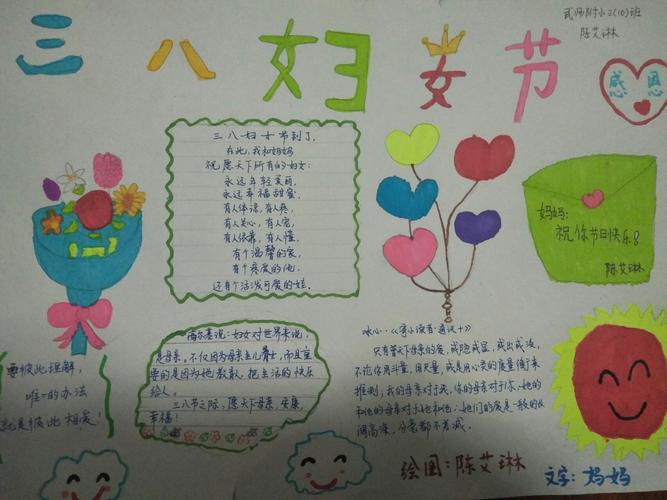 三八妇女节
武师附小二(10)班
陈艾琳
感恩
三八妇女节到了，
在此，我和妈妈
祝愿天下所有的妇女：
永远年轻美丽，
永远幸福甜蜜，
有人体谅，有人疼，
有人关心，有人宠，
有人依靠，有人懂，
有个温馨的家，
有个疼爱的他，
还有个活泼可爱的娃。
妈妈：
祝你节日快乐！
陈艾琳
要彼此理解，
唯一的办法
就是彼此相爱！
妇女对世界来说，
是母亲。不仅因为母亲生儿育女，而且重
要的是因为她教人，把生活的快乐
给人。
三八节之际，愿天下母亲，安康，
幸福！
冰心：《寄小读者·通讯十》
只有普天下母亲的爱，或隐或显，或出或没，
不论你用斗量，用尺量，或是用心灵的度量衡来
推测；我的母亲对于我，你的母亲对于你，她的
和他的母亲对于她和他；她们的爱是一般的长
阔高深，分毫都不差减。
绘图：陈艾琳
文字：妈妈